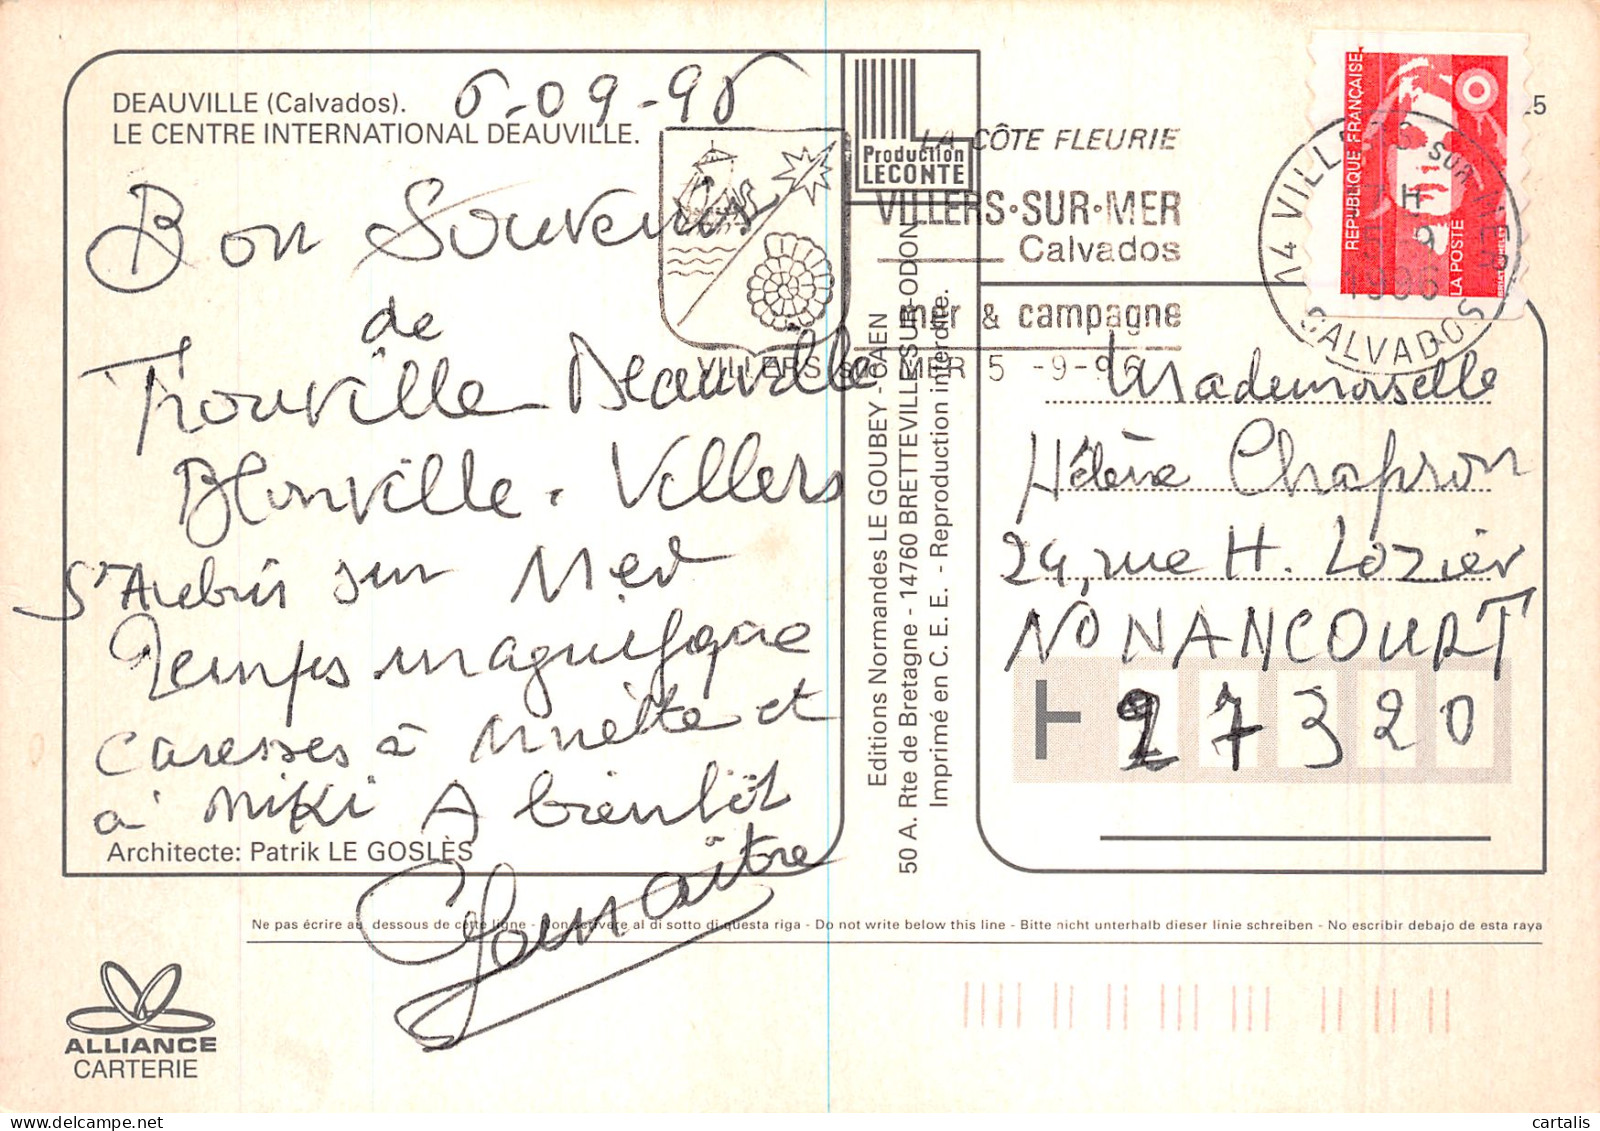 DEAUVILLE (Calvados).
LE CENTRE INTERNATIONAL DEAUVILLE.
Bon Souvenir
de
Trouville Deauville
Blonville - Villers
St Aubin sur Mer
Temps magnifique
caresses à Minette et
à MiKi A bientôt
Architecte: Patrik LE GOSLÈS
Production
LECONTE
Editions Normandes LE GOUBEY - CAEN
50 A. Rte de Bretagne - 14760 BRETTEVILLE-SUR-ODON
Imprimé en C. E. E. - Reproduction interdite.
LA CÔTE FLEURIE
VILLERS·SUR·MER
Calvados
mer & campagne
VILLERS sur MER 5 -9-96
RÉPUBLIQUE FRANÇAISE
LA POSTE
14 VILLERS SUR MER
5 9
1996
CALVADOS
5
Mademoiselle
Hélène Chapron
29, rue H. Lozier
NONANCOURT
27320
Ne pas écrire au dessous de cette ligne - Non scrivere al di sotto di questa riga - Do not write below this line - Bitte nicht unterhalb dieser linie schreiben - No escribir debajo de esta raya
ALLIANCE
CARTERIE
cartalis
delcampe.net